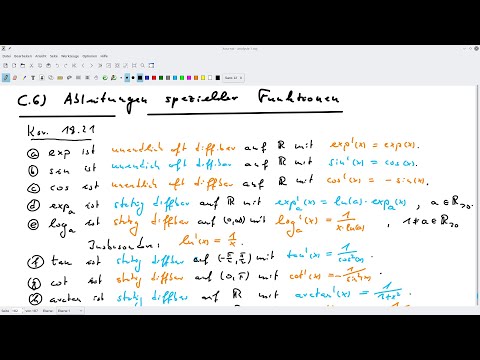 Datei Bearbeiten Ansicht Seite Werkzeuge Optionen
C.6) Ableitungen spezieller Funktionen
Kor. 18.21
(a) exp ist unendlich oft diffbar auf ℝ mit exp'(x) = exp(x).
(b) sin ist unendlich oft diffbar auf ℝ mit sin'(x) = cos(x).
(c) cos ist unendlich oft diffbar auf ℝ mit cos'(x) = - sin(x).
(d) exp_a ist stetig diffbar auf ℝ mit exp_a'(x) = ln(a)·exp_a(x) , a ∈ ℝ_{>0}
(e) log_a ist stetig diffbar auf (0,∞) mit log_a'(x) = 1/(x·ln(a)) , 1 ≠ a ∈ ℝ_{>0}
Insbesondere: ln'(x) = 1/x.
(f) tan ist stetig diffbar auf (-π/2, π/2) mit tan'(x) = 1/cos²(x)
(g) cot ist stetig diffbar auf (0,π) mit cot'(x) = -1/sin²(x)
(h) arctan ist stetig diffbar auf ℝ mit arctan'(x) = 1/(1+x²) .